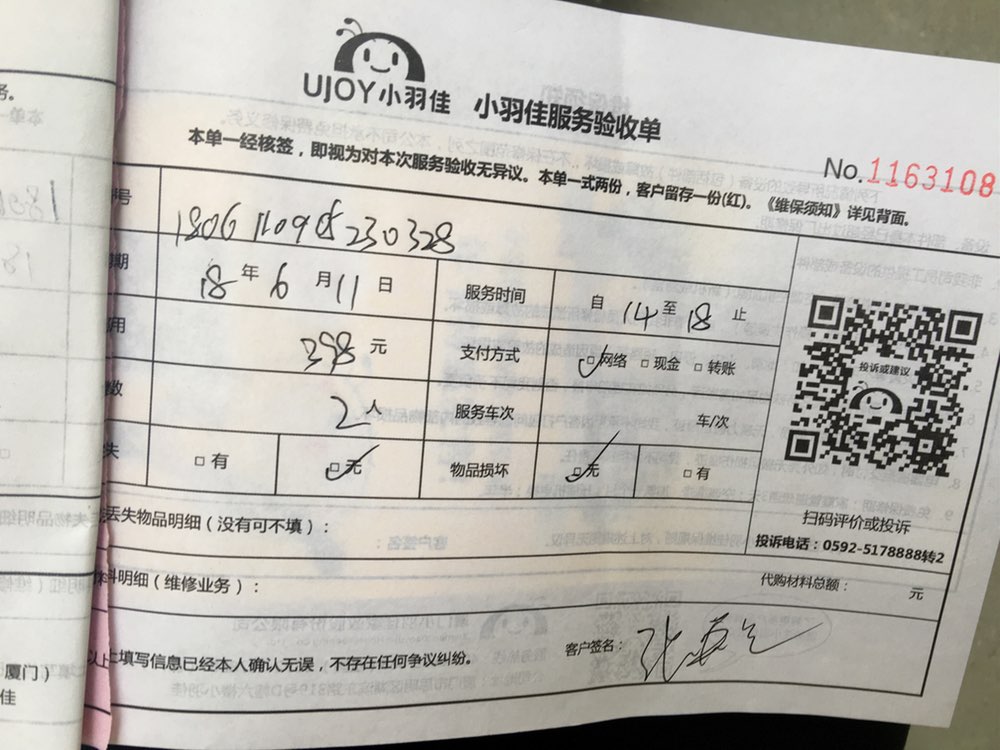 UJOY小羽佳 小羽佳服务验收单
本单一经核签，即视为对本次服务验收无异议。本单一式两份，客户留存一份(红)。《维保须知》详见背面。
No.1163108
号
期 18年6月11日 服务时间 自14至18止
用 398元 支付方式 □网络 □现金 □转账
数 2人 服务车次 车/次
失 □有 □无 物品损坏 □无 □有
投诉或建议
扫码评价或投诉
投诉电话：0592-5178888转2
丢失物品明细（没有可不填）：
料明细（维修业务）： 代购材料总额： 元
以上填写信息已经本人确认无误，不存在任何争议纠纷。 客户签名：
务。
厦门）
佳